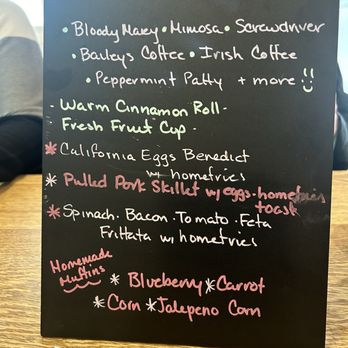 • Bloody Mary • Mimosa • Screwdriver
• Baileys Coffee • Irish Coffee
• Peppermint Patty + more !!
- Warm Cinnamon Roll -
- Fresh Fruit Cup -
* California Eggs Benedict
w/ homefries
* Pulled Pork Skillet w/ eggs • homefries
toast
* Spinach • Bacon • Tomato • Feta
Frittata w/ homefries
Homemade
Muffins
* Blueberry * Carrot
* Corn * Jalepeno Corn